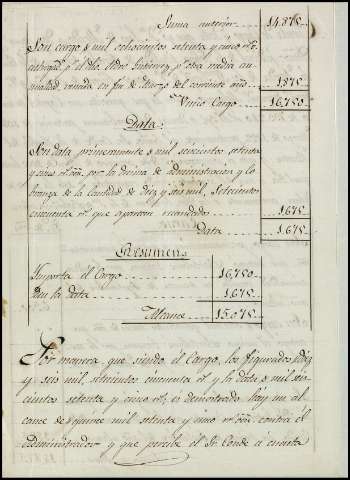 Suma anterior 14.875
Son cargo mil ochocientos setenta y cinco rs
por el dho. Pedro Gutierrez pr otra media an
ualidad vencida en fin de Marzo del corriente año 1.875
Unico Cargo 16,750
Data.
Son data primeramente mil seiscientos setenta
y cinco rs. von. por la decima de administracion y co
branza de la cantidad de diez y seis mil, setecientos
cincuenta rs. que aparecen recaudados 1.675
Data 1.675
Resumen.
Importa el Cargo 16,750
Idm la data 1,675
Alcance 15,075
Por manera que siendo el Cargo, los figurados diez
y seis mil, setecientos cincuenta rs. y la data mil seis
cientos setenta y cinco rs. es demostrado hay un al
cance de quince mil setenta y cinco rs. von. contra el
administrador y que percibe el Sr. Conde á cuenta